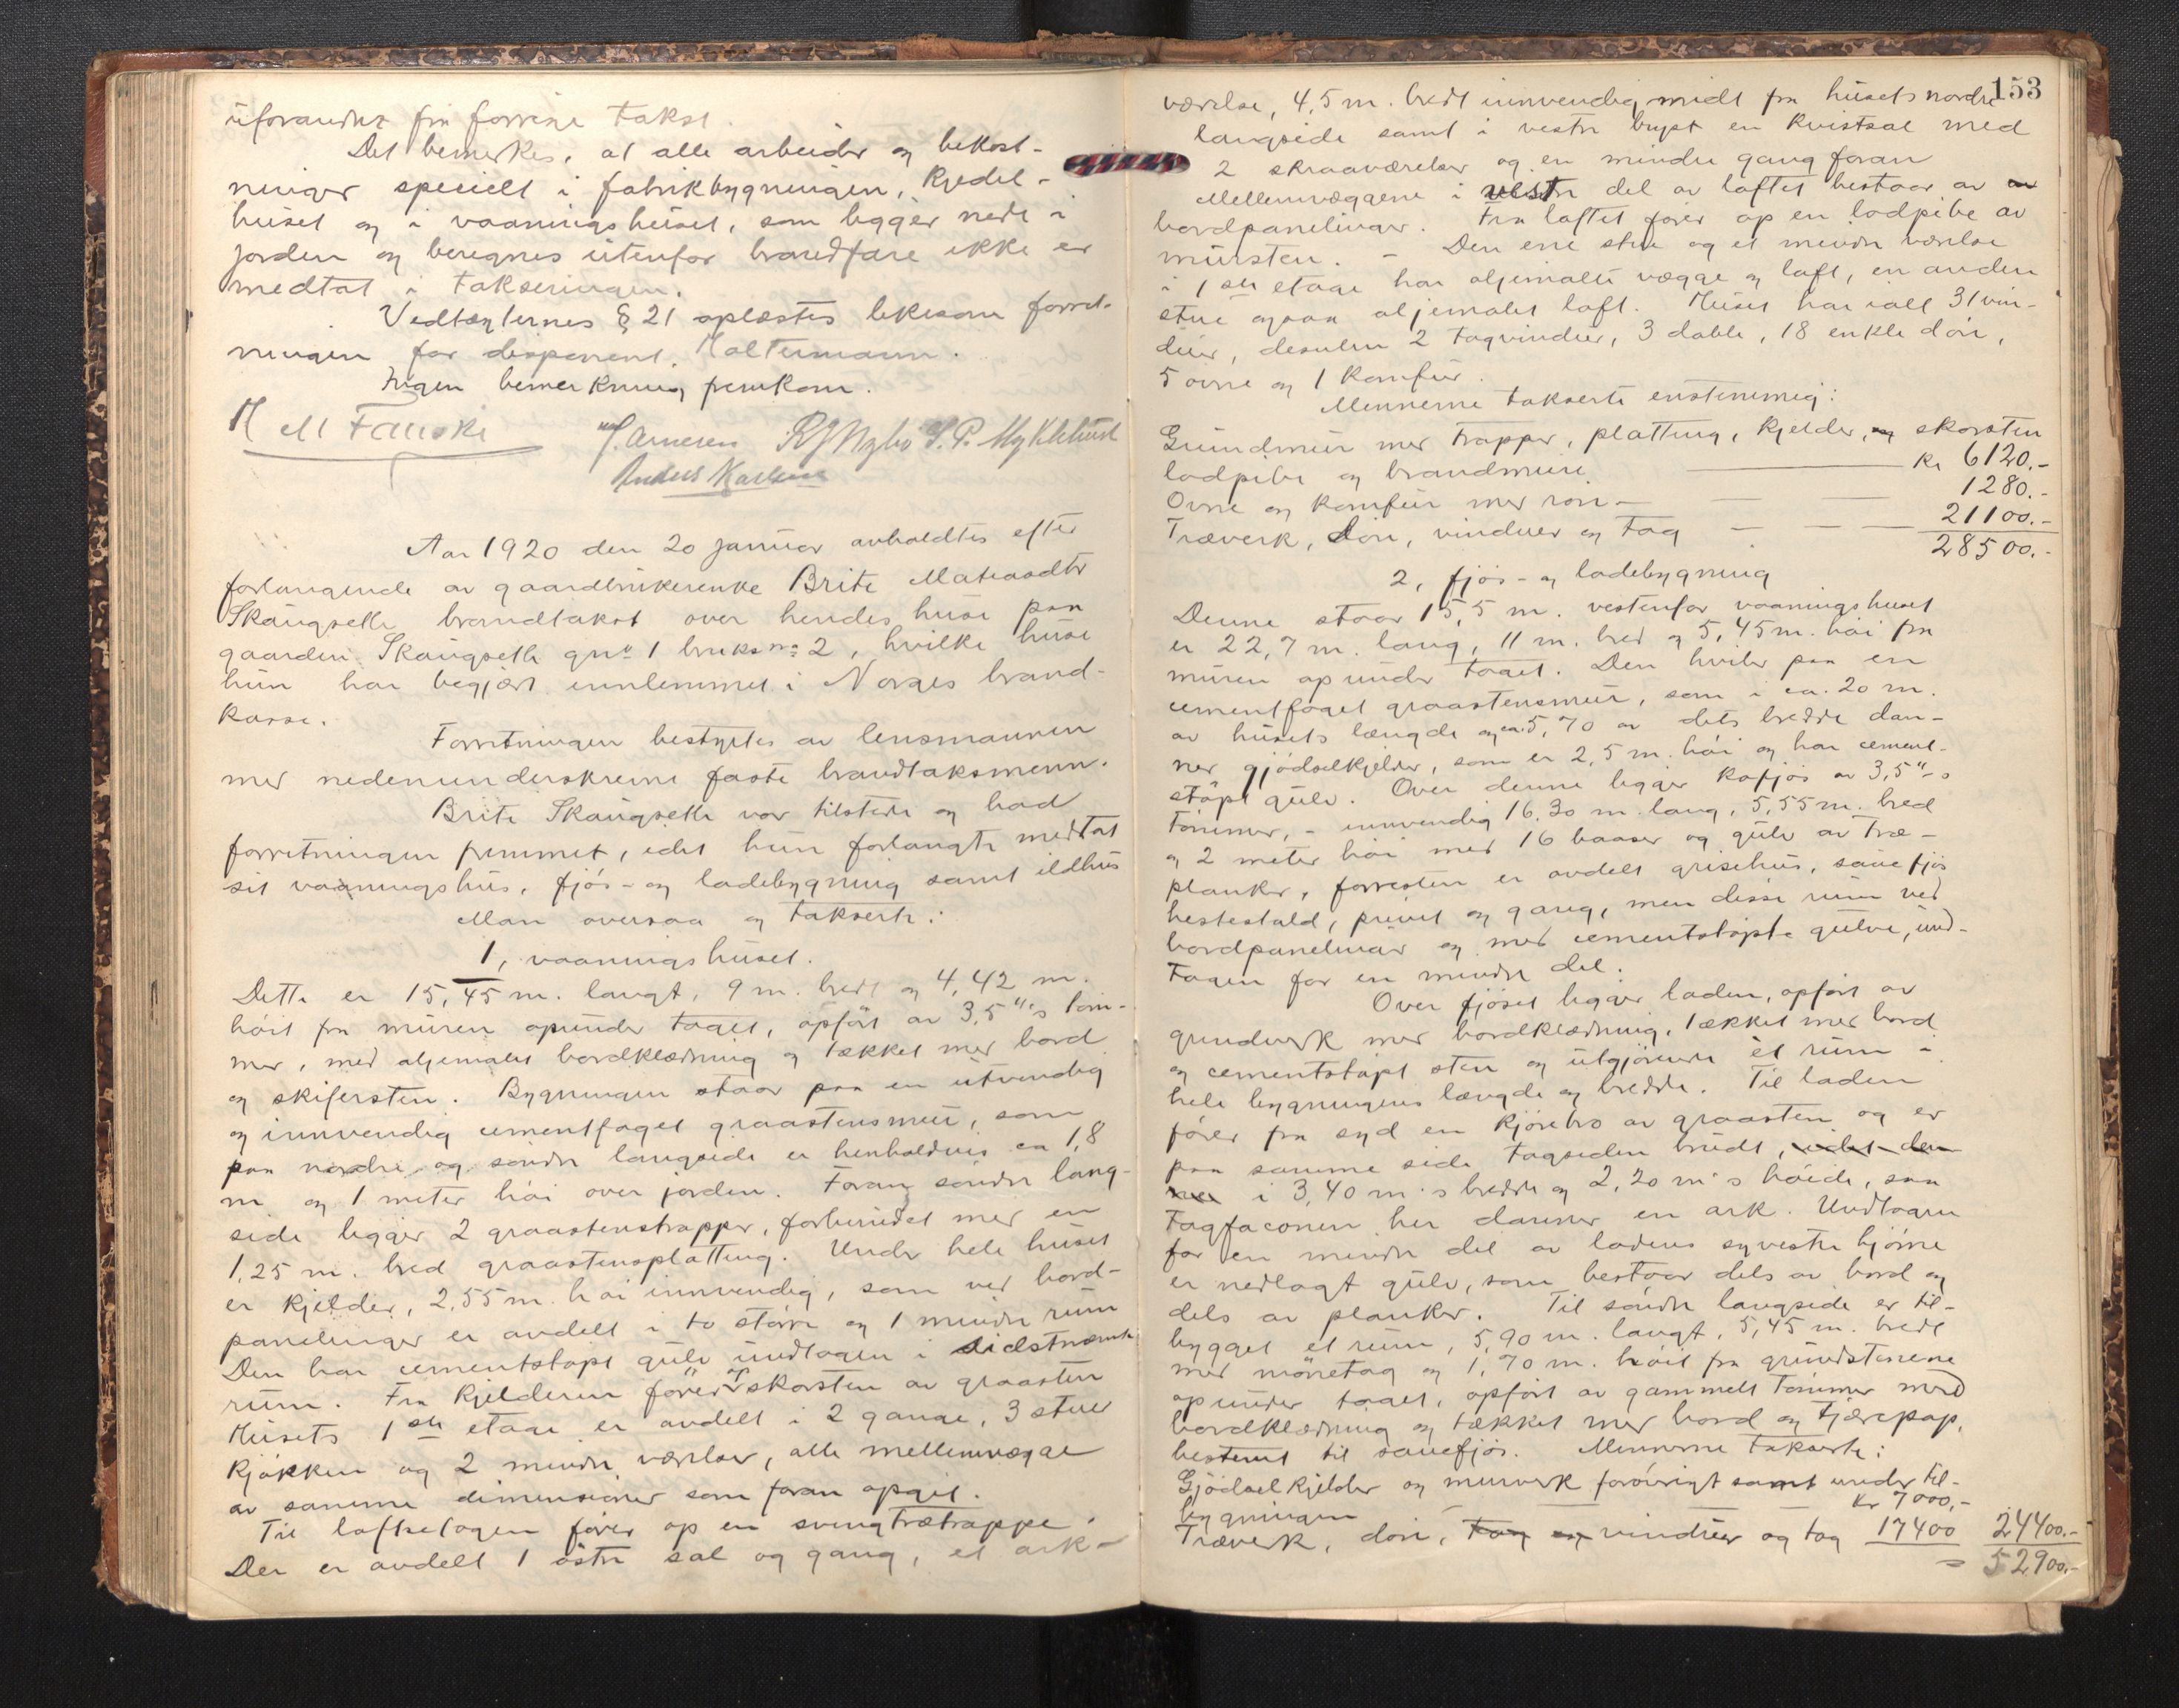 uforandret fra forrige takst.
Det bemerkes, at alle arbeider og bekost-
ninger specielt i fabrikbygningen, Kjedel-
huset og i vaaningshuset, som ligger nede i
jorden og beregnes utenfor brandfare ikke er
medtat i takseringen.
Vedtægternes § 21 oplæstes likesom forret-
ningen for disponent Haltermann.
Ingen bemerkning fremkom.
M M Fauske J. Arnesen R J Nybø S. P. Myklebust
Anders Karlsen
Aar 1920 den 20 januar avholdtes efter
forlangende av gaardbrukerenke Brite Matiasdtr
Skaugseth brandtakst over hendes huse paa
gaarden Skaugseth gno 1 bruksno 2, hvilke huse
hun har begjært innlemmet i Norges brand-
kasse.
Forretningen bestyrtes av lensmannen
med nedenunderskrevne faste brandtaksmenn.
Brite Skaugseth var tilstede og bad
forretningen fremmet, idet hun forlangte medtat
sit vaaningshus, fjøs- og ladebygning samt ildhus
Man oversaa og takserte:
1, vaaningshuset.
Dette er 15,45 m. langt, 9 m. bredt og 4,42 m.
høit fra muren opunder taget, opført av 3,5"'s tøm-
mer, med oljemalet bordklædning og tækket med bord
og skifersten. Bygningen staar paa en utvendig
og innvendig cementfaget graastensmur, som
paa nordre og søndre langside er henholdsvis ca 1,8
m og 1 meter høi over jorden. Foran søndre lang-
side ligger 2 graastenstrapper, forbundet med en
1,25 m. bred graastensplatting. Under hele huset
er kjelder, 2,55 m. høi innvendig, som ved bord-
panelinger er avdelt i to større og 1 mindre rum
Den har cementstøpt gulv undtagen i sidstnævnte
rum. Fra kjelderen fører op skorsten av graasten
Husets 1ste etage er avdelt i 2 gange, 3 stuer
Kjøkken og 2 mindre værelser, alle mellemvægge
av samme dimensioner som foran opgit.
Til loftsetagen fører op en svingtrætrappe.
Der er avdelt 1 østre sal og gang, et ark-
153
værelse, 4,5 m. bredt innvendig midt paa husets nordre
langside samt i vestre bryst en kvistsal med
2 skraaværelser og en mindre gang foran
Mellemvæggene i vestre del av loftet bestaar av
bordpanelinger. Fra loftet fører op en lodpibe av
mursten. - Den ene stue og et mindre værelse
i 1ste etage har oljemalte vægge og loft, en anden
stue ogsaa oljemalet loft. Huset har ialt 31 vin-
duer, desuten 2 tagvinduer, 3 doble, 18 enkle døre,
5 ovne og 1 komfur.
Mennerne takserte enstemmig:
Grundmur med trapper, platting, kjelder, og skorsten
lodpibe og brandmure Kr 6120.-
Ovne og komfur med rør - 1280.-
Træverk, døre, vinduer og tag - 21100.-
28500.-
2, fjøs- og ladebygning
Denne staar 15,5 m. vestenfor vaaningshuset
er 22,7 m. lang, 11 m. bred og 5,45 m. høi fra
muren opunder taget. Den hviler paa en
cementfaget graastensmur, som i ca. 20 m.
av husets længde og ca. 5,70 av dets bredde dan-
ner gjødselkjelder, som er 2,5 m. høi og har cement-
støpt gulv. Over denne ligger kofjøs av 3,5"'s
tømmer, - innvendig 16,30 m. lang, 5,55 m. bred
og 2 meter høi med 16 baaser og gulv av træ-
planker, forresten er avdelt grisehus, sauefjøs
hestestald, privet og gang, men disse rum ved
bordpanelinger og med cementstøpte gulve, und-
tagen for en mindre del.
Over fjøset ligger laden, opført av
grundverk med bordklædning, tækket med bord
og cementstøpt sten og utgjørende èt rum i
hele bygningens længde og bredde. Til laden
fører fra syd en kjørebro av graasten og er
paa samme side tagsiden brudt, idet den
ner i 3,40 m's bredde og 2,20 m's høide, saa
tagfaconen her danner en ark. Undtagen
for en mindre del av ladens syvestre hjørne
er nedlagt gulv, som bestaar dels av bord og
dels av planker. Til søndre langside er til-
bygget et rum, 5,90 m. langt, 5,45 m. bredt
med mønetag og 1,70 m. høit fra grundstenene
opunder taget, opført av gammelt tømmer med
bordklædning og tækket med bord og tjærepap,
bestemt til sauefjøs. Mennerne takserte:
Gjødselkjelder og murverk forøvrigt samt under til-
bygningen Kr 7000,-
Træverk, døre, tag og vinduer og tag 17400 24400.-
= 52900.-